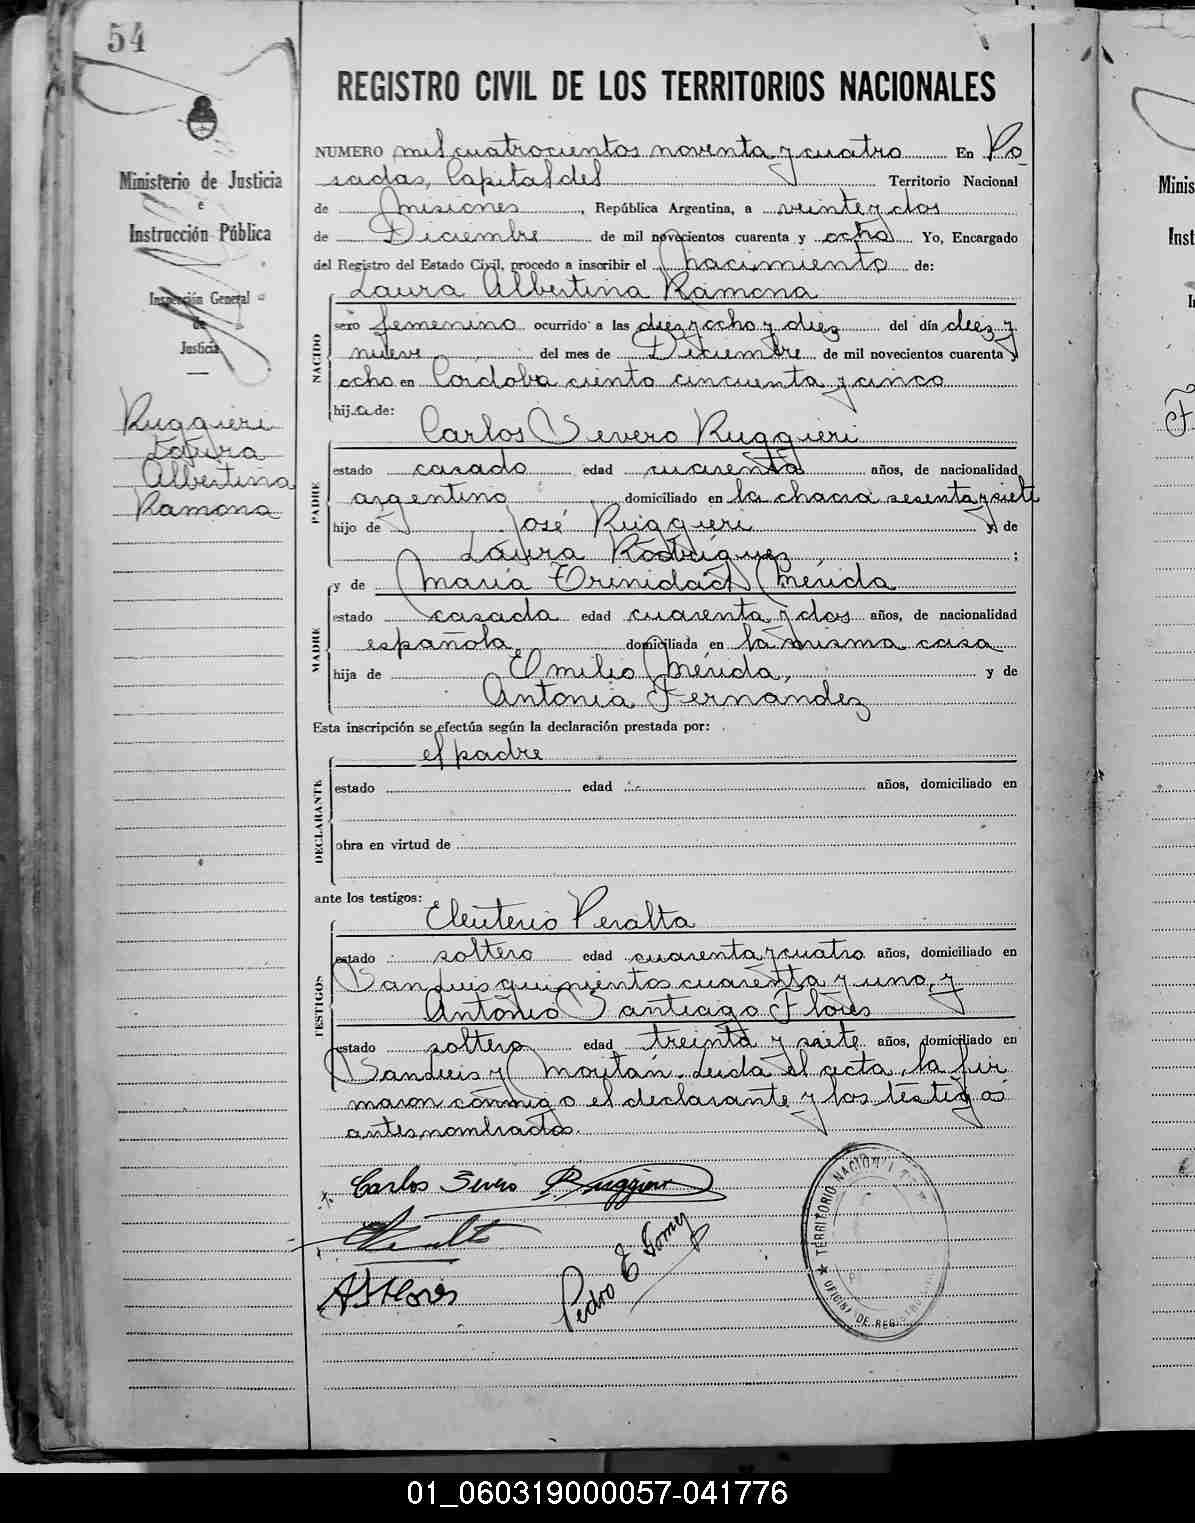 54
Ministerio de Justicia
e
Instrucción Pública
Inspección General
de
Justicia
Ruggieri
Laura
Albertina
Ramona
REGISTRO CIVIL DE LOS TERRITORIOS NACIONALES
NUMERO mil cuatrocientos noventa y cuatro En Po
sadas, Capital del Territorio Nacional
de Misiones, República Argentina, a veinte y dos
de Diciembre de mil novecientos cuarenta y ocho Yo, Encargado
del Registro del Estado Civil, procedo a inscribir el nacimiento de:
Laura Albertina Ramona
NACIDO
sexo femenino ocurrido a las diez y ocho y diez del día diez y
nueve del mes de Diciembre de mil novecientos cuarenta y
ocho en Cordoba ciento cincuenta y cinco
hija de:
Carlos Severo Ruggieri
PADRE
estado casado edad cuarenta años, de nacionalidad
argentino domiciliado en la chacra sesenta y siete
hijo de José Ruggieri y de
Laura Rodríguez ;
y de María Trinidad Mérida
MADRE
estado casada edad cuarenta y dos años, de nacionalidad
española domiciliada en la misma casa
hija de Emilio Mérida, y de
Antonia Fernandez
Esta inscripción se efectúa según la declaración prestada por:
el padre
DECLARANTE
estado edad años, domiciliado en
obra en virtud de
ante los testigos:
Eleuterio Peralta
TESTIGOS
estado soltero edad cuarenta y cuatro años, domiciliado en
San Luis quinientos cuarenta y uno, y
Antonio Santiago Flores
estado soltero edad treinta y siete años, domiciliado en
San Luis y Moritán. Leida el acta, la fir
maron conmigo el declarante y los testigos
antes nombrados.
Carlos Severo Ruggieri
A S Flores
Pedro E Gomez
TERRITORIO NACIONAL
OFICINA DE REGISTRO
Minis
Inst
01_060319000057-041776